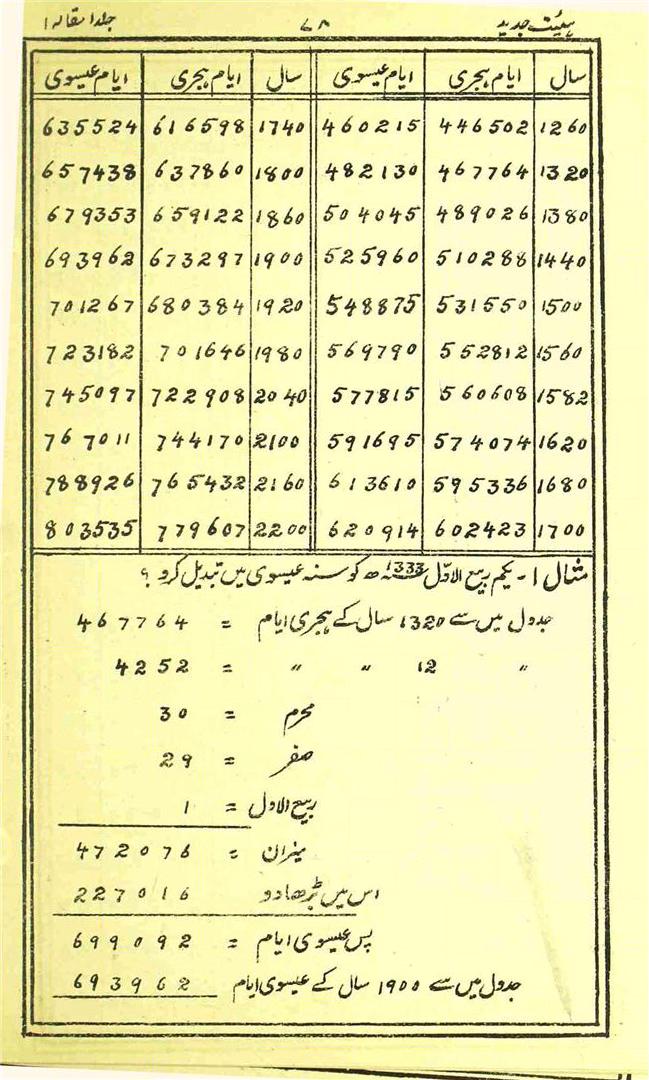 ہیئت جدید ۶۸ جلد ۱ مقالہ ۱
سال ایام ہجری ایام عیسوی سال ایام ہجری ایام عیسوی
1260 446502 460215 1740 616598 635524
1320 467764 482130 1800 637860 657438
1380 489026 504045 1860 659122 679353
1440 510288 525960 1900 673297 693962
1500 531550 548875 1920 680384 701267
1560 552812 569790 1980 701646 723182
1582 560608 577815 2040 722908 745097
1620 574074 591695 2100 744170 767011
1680 595336 613610 2160 765432 788926
1700 602423 620914 2200 779607 803535
مثال ۱ - یکم ربیع الاوّل 1333ھ کو سنہ عیسوی میں تبدیل کرو ؟
جدول میں سے 1320 سال کے ہجری ایام = 467764
〃 12 〃 〃 = 4252
محرم = 30
صفر = 29
ربیع الاول = 1
میزان = 472076
اس میں بڑھادو 227016
پس عیسوی ایام = 699092
جدول میں سے 1900 سال کے عیسوی ایام 693962